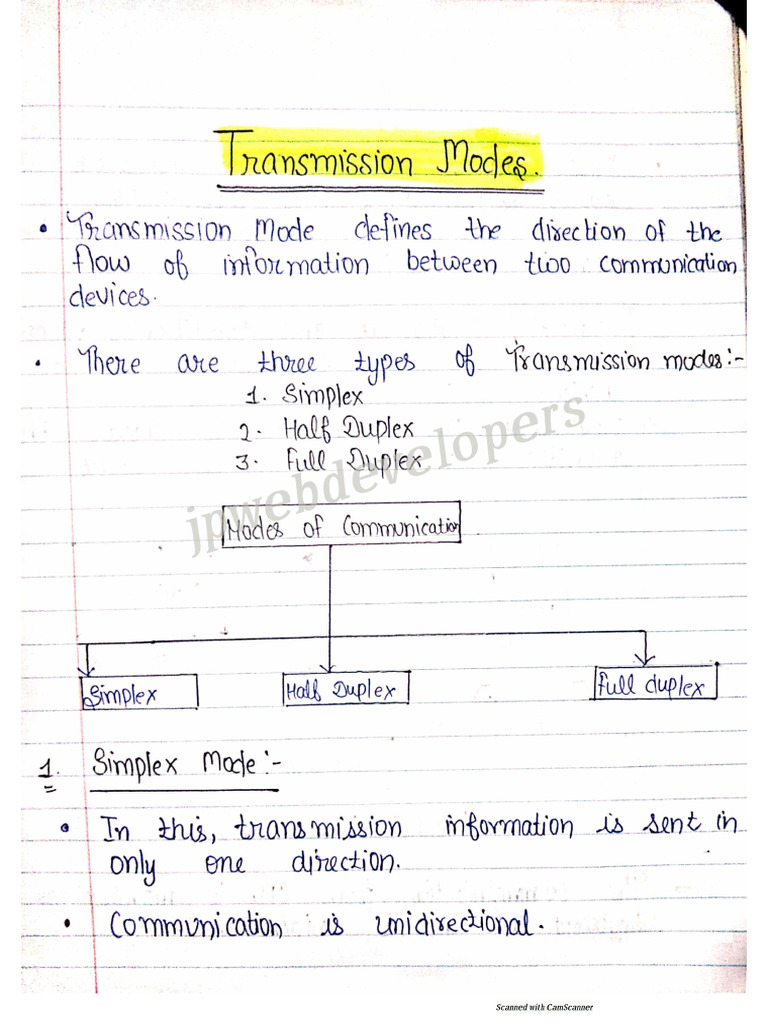 Transmission Modes.
• Transmission Mode defines the direction of the
flow of information between two communication
devices.
• There are three types of Transmission modes:-
1. Simplex
2. Half Duplex
3. Full Duplex
jpwebdevelopers
Modes of Communication
Simplex
Half Duplex
Full duplex
1. Simplex Mode:-
• In this, transmission information is sent in
only one direction.
• Communication is unidirectional.
Scanned with CamScanner